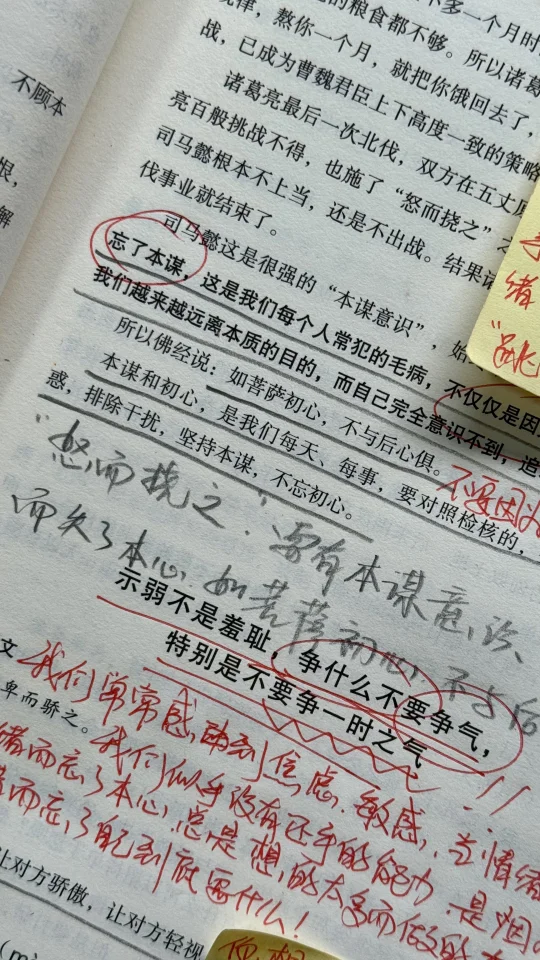 不顾本
恨,
解
不多一个月时
的粮食都不够。所以诸葛
规律,熬你一个月,就把你饿回去了,
战,已成为曹魏君臣上下高度一致的策略
诸葛亮最后一次北伐,双方在五丈原
亮百般挑战不得,也施了“怒而挠之”之
司马懿根本不上当,还是不出战。结果诸
伐事业就结束了。
司马懿这是很强的“本谋意识”,始
忘了本谋,这是我们每个人常犯的毛病,不仅仅是因
我们越来越远离本质的目的,而自己完全意识不到,追
所以佛经说:如菩萨初心,不与后心俱。
本谋和初心,是我们每天、每事,要对照检核的,
惑,排除干扰,坚持本谋,不忘初心。
绪
“挑
不要因为
“怒而挠之”:要有本谋意识、
而失了本心,如菩萨初心,不与后
示弱不是羞耻,争什么不要争气,
特别是不要争一时之气
文
卑而骄之。
我们常常感动到焦虑、敏感,当情绪
绪而忘了本心,我们似乎没有还手的能力,是烟
而忘了本心,总是想的太多而做的太
而忘了自己到底要什么!
让对方骄傲,让对方轻视
你想